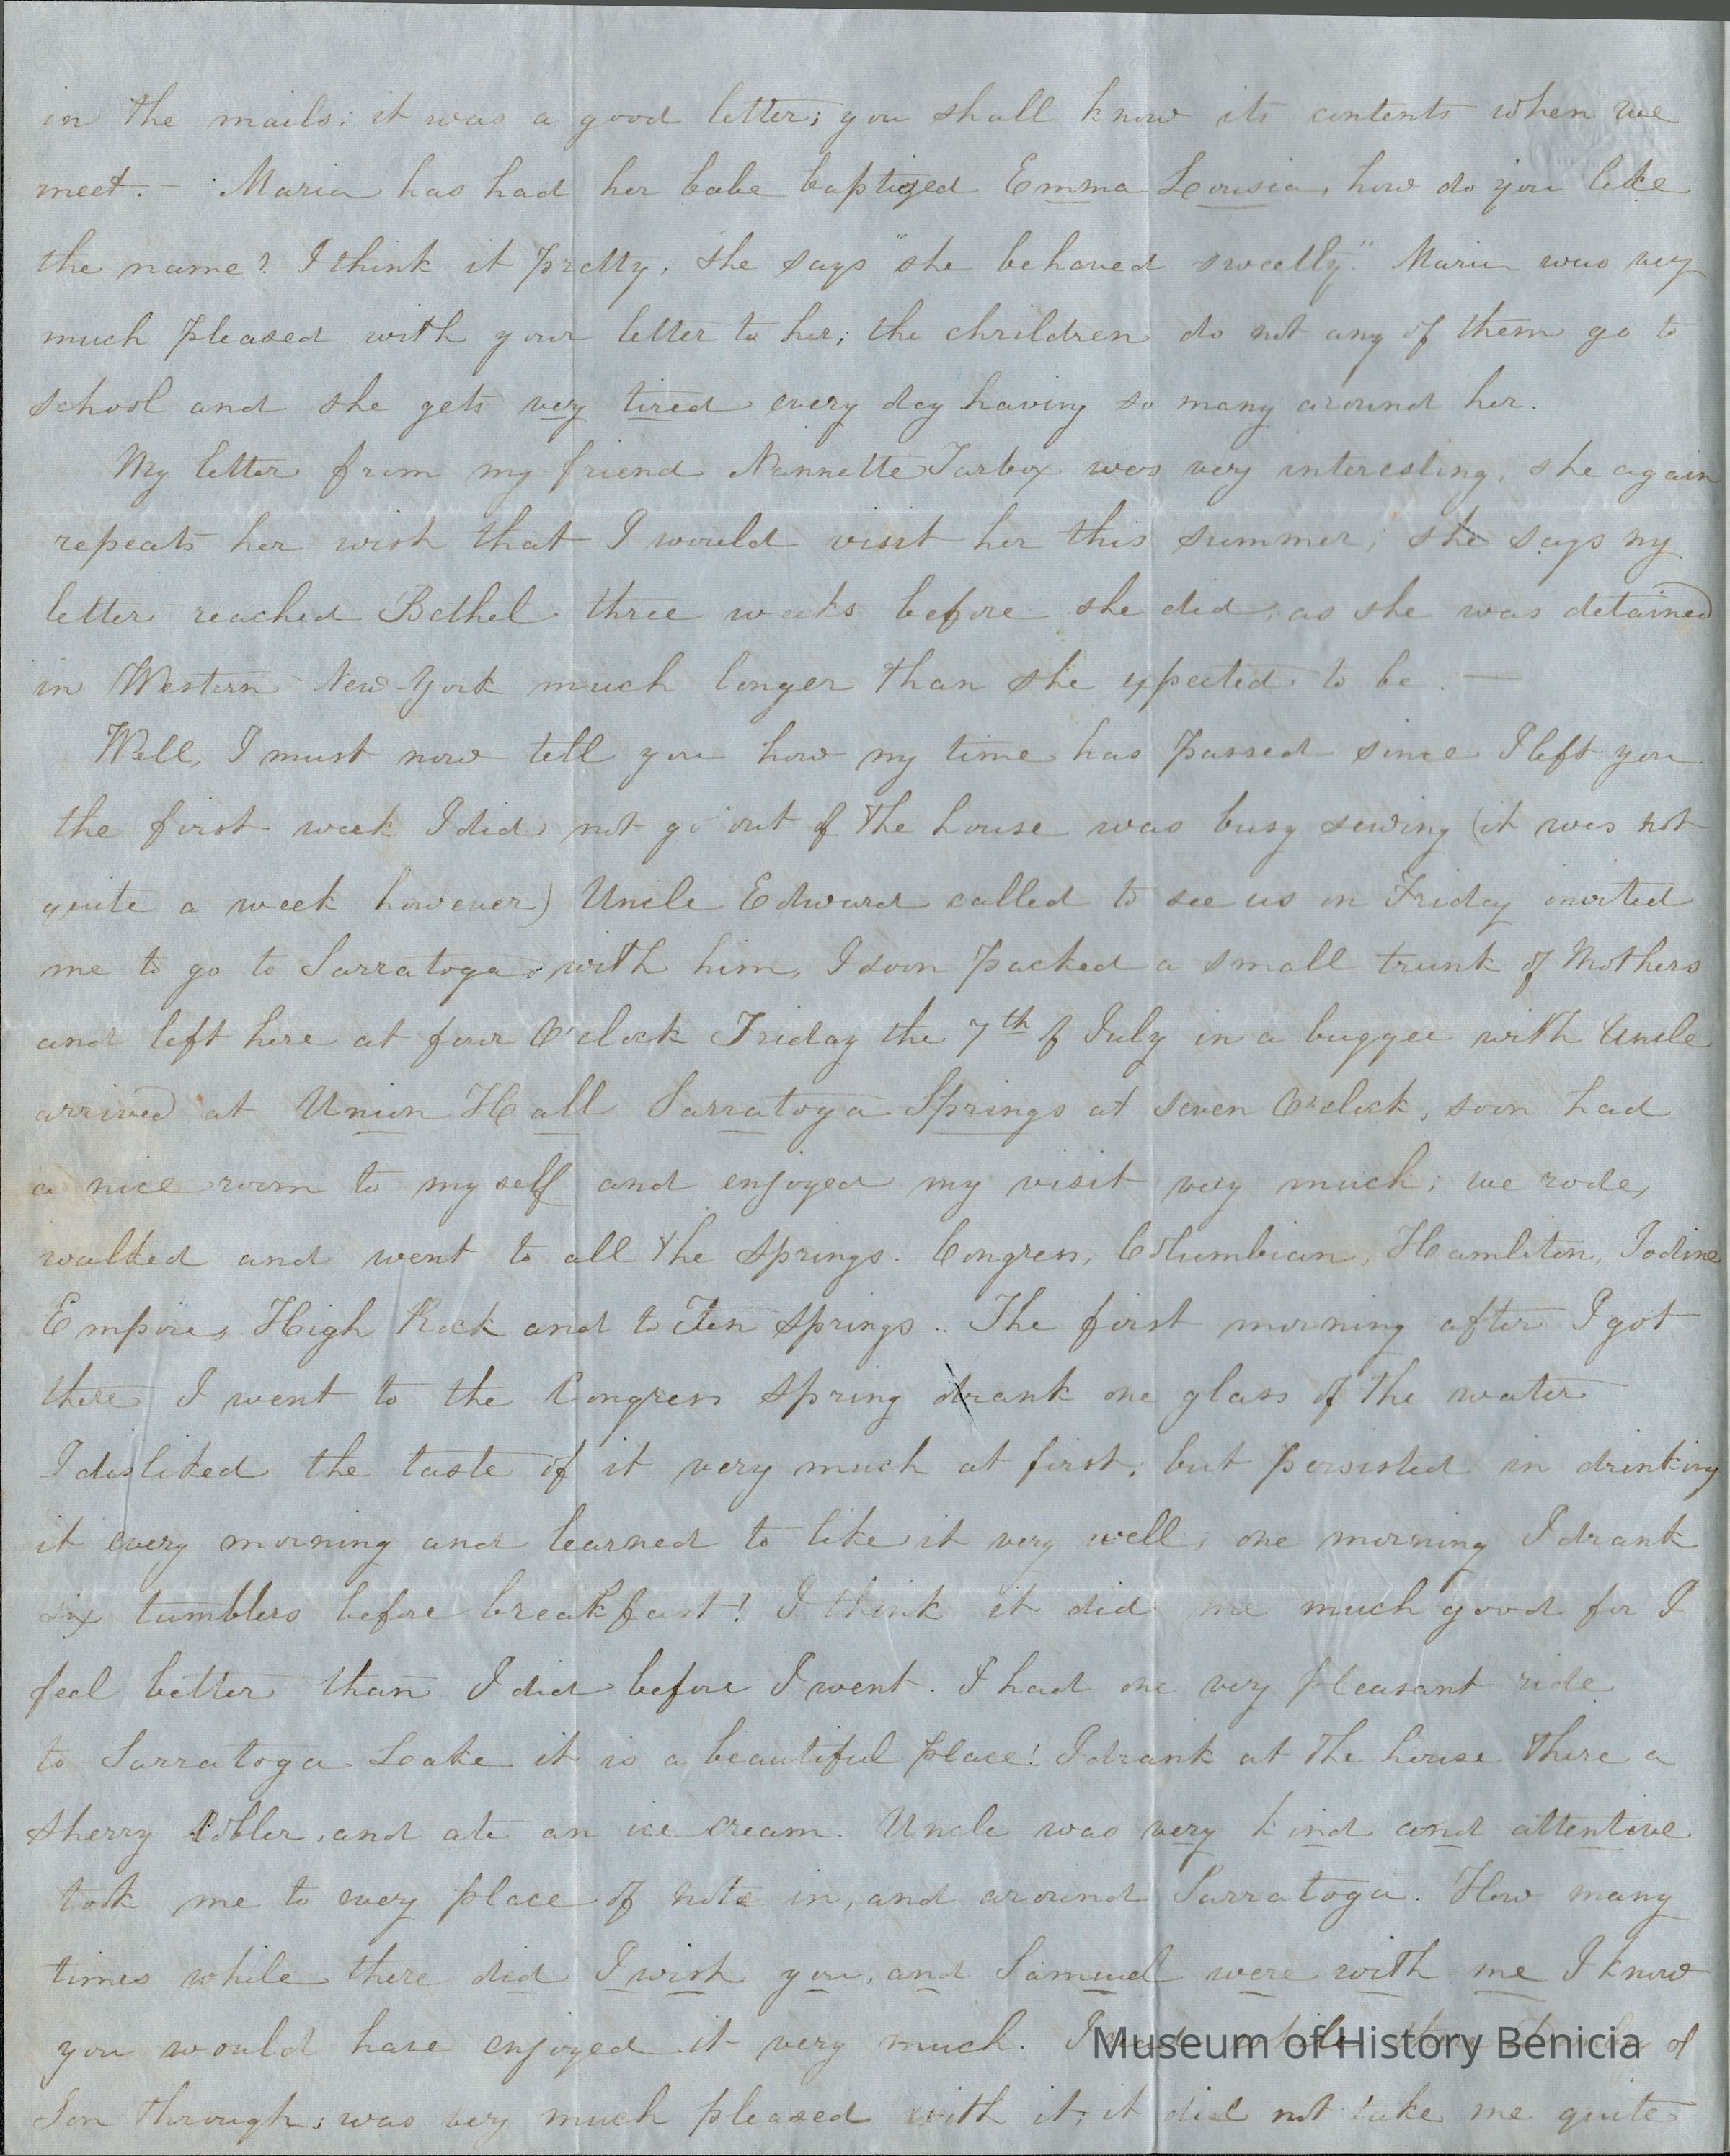 in the mails; it was a good letter; you shall know its contents when we
meet. — Maria has had her babe baptized Emma Lousia, how do you like
the name? I think it pretty, she says "she behaved sweetly." Maria was very
much pleased with your letter to her; the chrildren do not any of them go to
school and she gets very tired every day having so many around her.
My letter from my friend Nannette Tarbox was very interesting, she again
repeats her wish that I would visit her this summer; she says my
letter reached Bethel three weeks before she did, as she was detained
in Western New-York much longer than she expected to be. —
Well, I must now tell you how my time has passed since I left you
the first week I did not go out of the house was busy sewing (it was not
quite a week however) Uncle Edward called to see us on Friday invited
me to go to Sarratoga with him, I soon packed a small trunk of Mothers
and left here at four O'clock Friday the 7th of July in a buggee with Uncle
arrived at Union Hall Sarratoga Springs at seven O'clock, soon had
a nice room to myself and enjoyed my visit very much; we rode,
walked and went to all the Springs. Congress, Columbian, Hamliton, Iodine
Empire, High Rock and to Ten Springs.. The first morning after I got
there I went to the Congress Spring drank one glass of the water
I disliked the taste of it very much at first, but persisted in drinking
it every morning and learned to like it very well, one morning I drank
six tumblers before breakfast! I think it did me much good for I
feel better than I did before I went. I had one very pleasant ride
to Sarratoga Lake it is a beautiful place! I drank at the house there a
sherry Cobler, and ate an ice cream. Uncle was very kind and attentive
took me to every place of note in, and around Sarratoga. How many
times while there did I wish you, and Samuel were with me I know
you would have enjoyed it very much. I of
Son through; was very much pleased with it, it did not take me quite
Museum of History Benicia